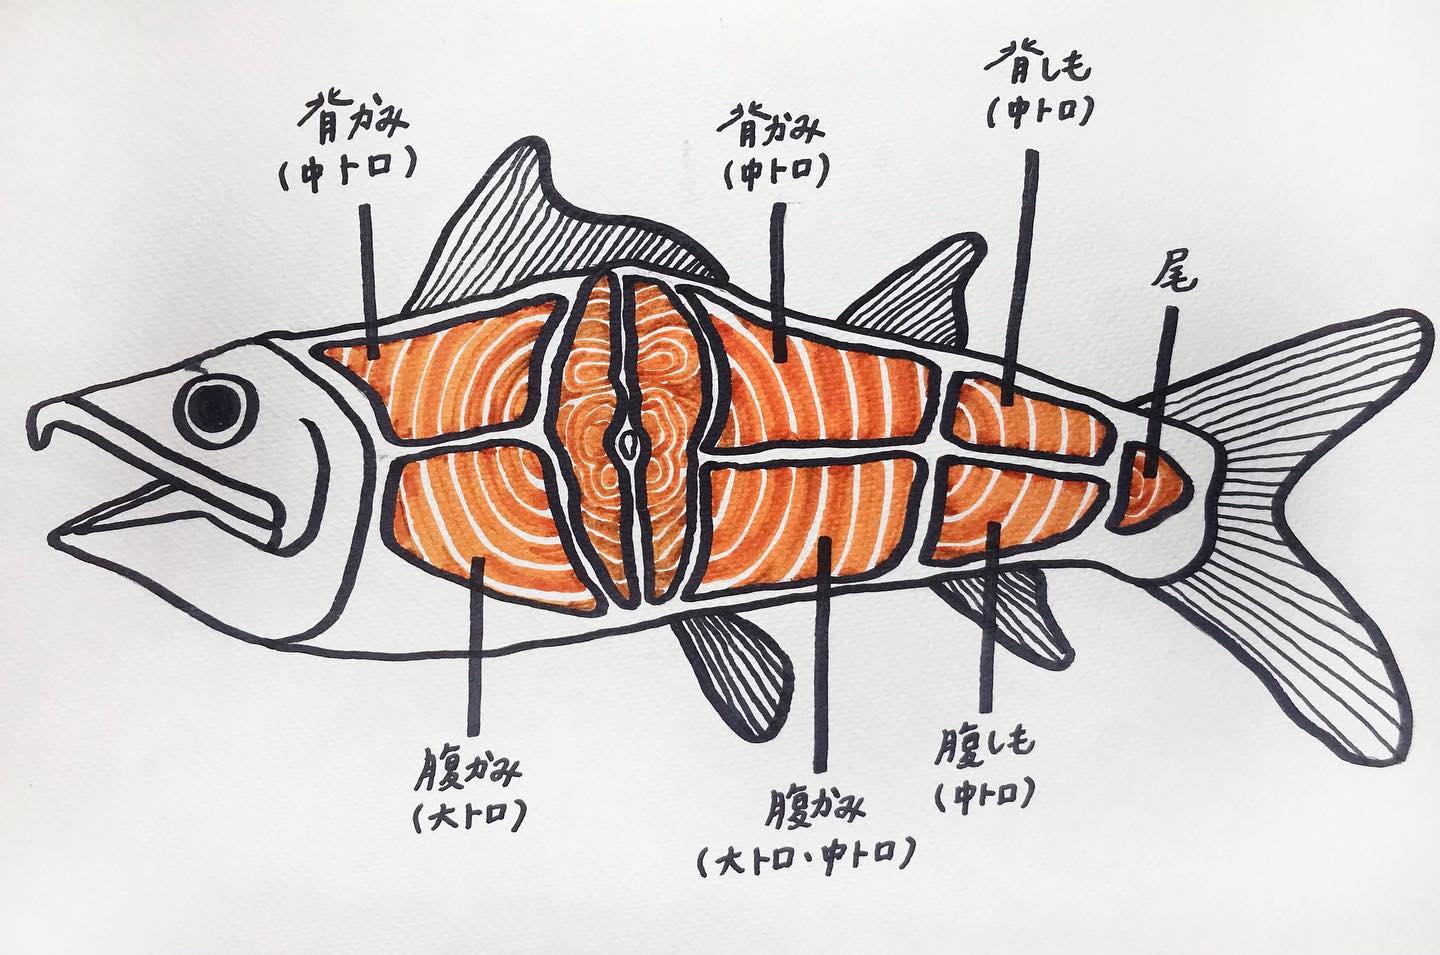 背かみ
(中トロ)
背かみ
(中トロ)
背しも
(中トロ)
尾
腹かみ
(大トロ)
腹かみ
(大トロ・中トロ)
腹しも
(中トロ)